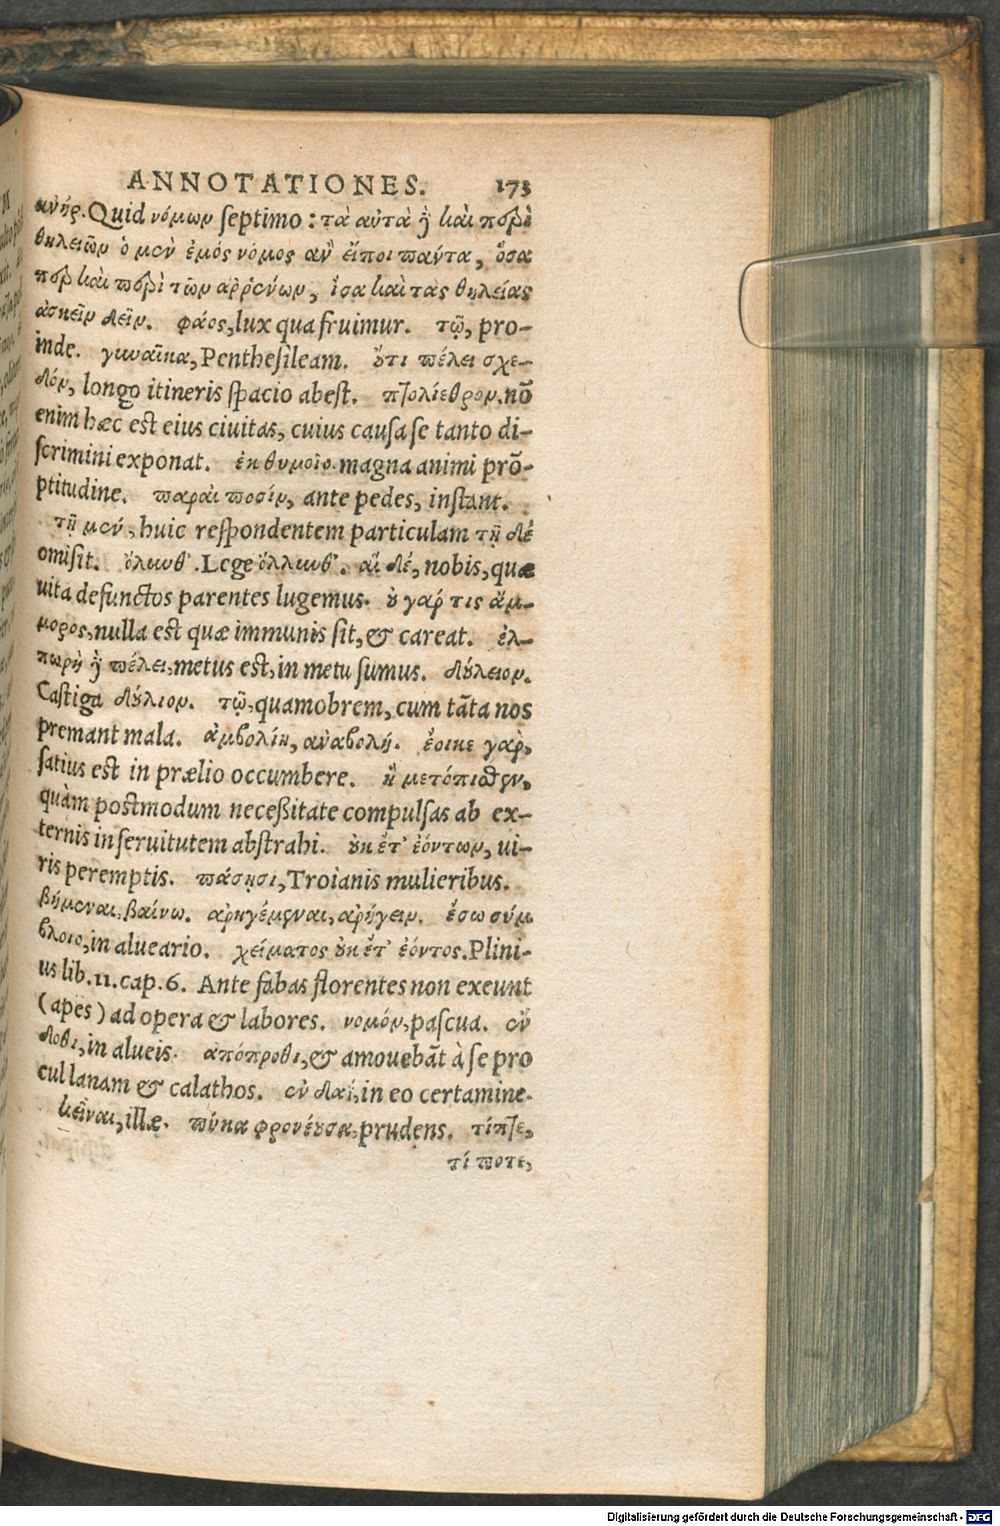 ANNOTATIONES. 173
ανήρ. Quid νόμων septimo: τὰ αὐτὰ ἢ καὶ περὶ
θηλειῶν ὁ μὲν ἐμός νόμος ἂν εἴποι πάντα, ὅσα
περ καὶ περὶ τῶν ἀῤῥένων, ἴσα καὶ τὰς θηλείας
ἀσκεῖν δεῖν. φάος, lux qua fruimur. τῷ, pro-
inde. γυναῖκα, Penthesileam. ὅτι πέλει σχε-
δόν, longo itineris spacio abest. πτολίεθρον. nō
enim hæc est eius ciuitas, cuius causa se tanto di-
scrimini exponat. ἐκ θυμοῖο. magna animi prō-
ptitudine. παραὶ ποσίν, ante pedes, instant.
τῇ μέν, huic respondentem particulam τῇ δέ
omisit. ὄλωνθ'. Lege ὄλλωνθ'. αἵ δέ, nobis, quæ
uita defunctos parentes lugemus. οὐ γάρ τις ἄμ-
μορος, nulla est quæ immunis sit, & careat. ἐλ-
πωρὴ ἢ πέλει, metus est, in metu sumus. δούλειον.
Castiga δούλιον. τῷ, quamobrem, cum tāta nos
premant mala. ἀμβολίη, ἀναβολή. ἔοικε γάρ,
satius est in prælio occumbere. ἢ μετόπισθεν,
quàm postmodum necessitate compulsas ab ex-
ternis in seruitutem abstrahi. οὐκ ἔτ' ἐόντων, ui-
ris peremptis. πάσησι, Troianis mulieribus.
βήμεναι, βαίνω. ἀρηγέμεναι, ἀρήγειν. ἔσω σύμ
βλοιο, in alueario. χείματος οὐκ ἔτ' ἐόντος. Plini-
us lib. 11. cap. 6. Ante fabas florentes non exeunt
(apes) ad opera & labores. νομόν, pascua. ἔν
δοθι, in alueis. ἀπόπροθι, & amouebāt à se pro
cul lanam & calathos. ἐν δαΐ, in eo certamine.
κεῖναι, illæ. πύκα φρονέουσα, prudens. τίπτε,
τί ποτε,
Digitalisierung gefördert durch die Deutsche Forschungsgemeinschaft - DFG